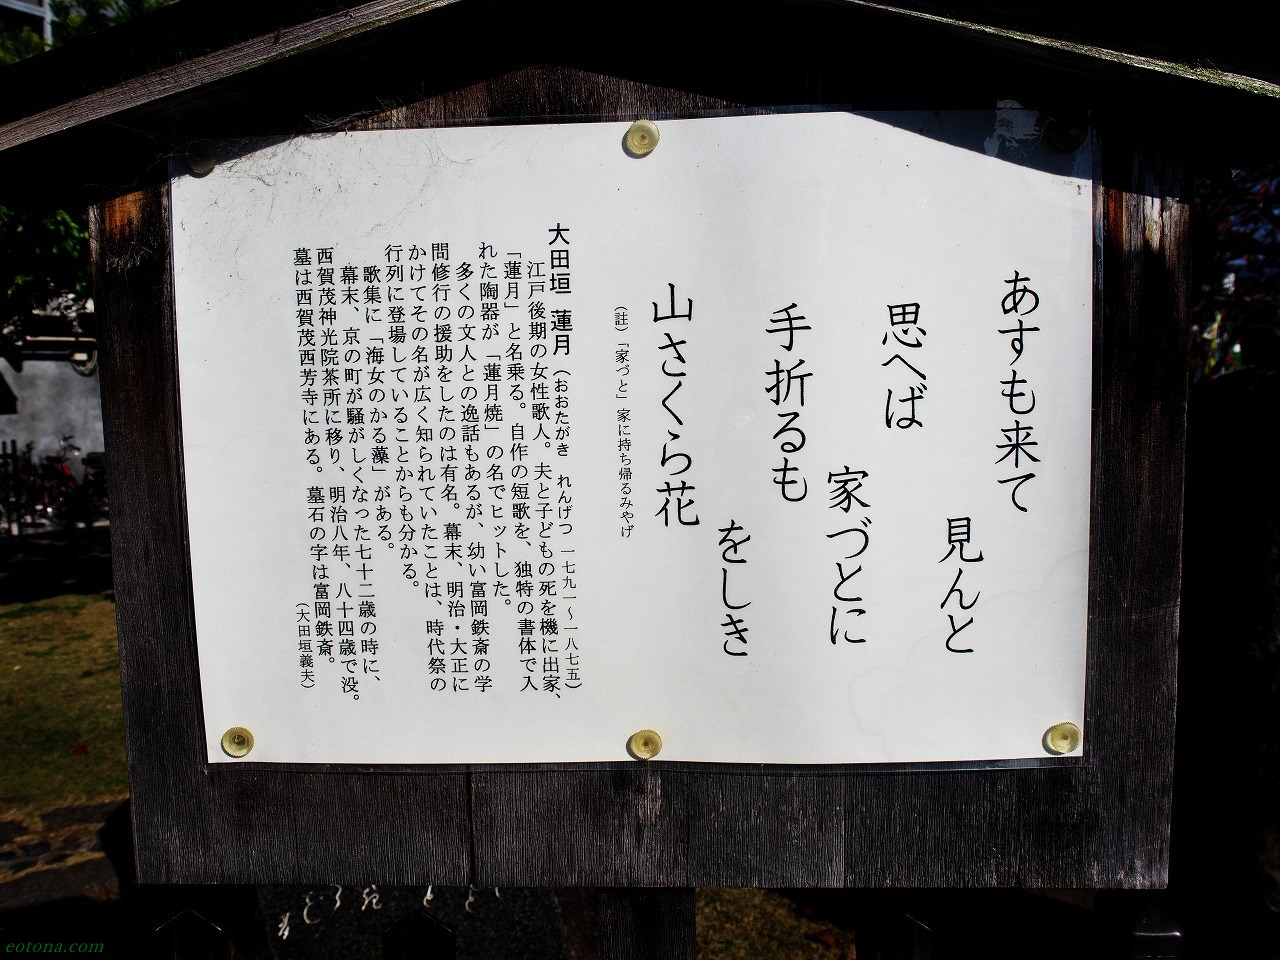 あすも来て
見んと
思へば
家づとに
手折るも
をしき
山さくら花
（註）「家づと」家に持ち帰るみやげ
大田垣 蓮月（おおたがき れんげつ 一七九一～一八七五）
江戸後期の女性歌人。夫と子どもの死を機に出家、
「蓮月」と名乗る。自作の短歌を、独特の書体で入
れた陶器が「蓮月焼」の名でヒットした。
多くの文人との逸話もあるが、幼い富岡鉄斎の学
問修行の援助をしたのは有名。幕末、明治・大正に
かけてその名が広く知られていたことは、時代祭の
行列に登場していることからも分かる。
歌集に「海女のかる藻」がある。
幕末、京の町が騒がしくなった七十二歳の時に、
西賀茂神光院茶所に移り、明治八年、八十四歳で没。
墓は西賀茂西芳寺にある。墓石の字は富岡鉄斎。
（大田垣義夫）
eotona.com